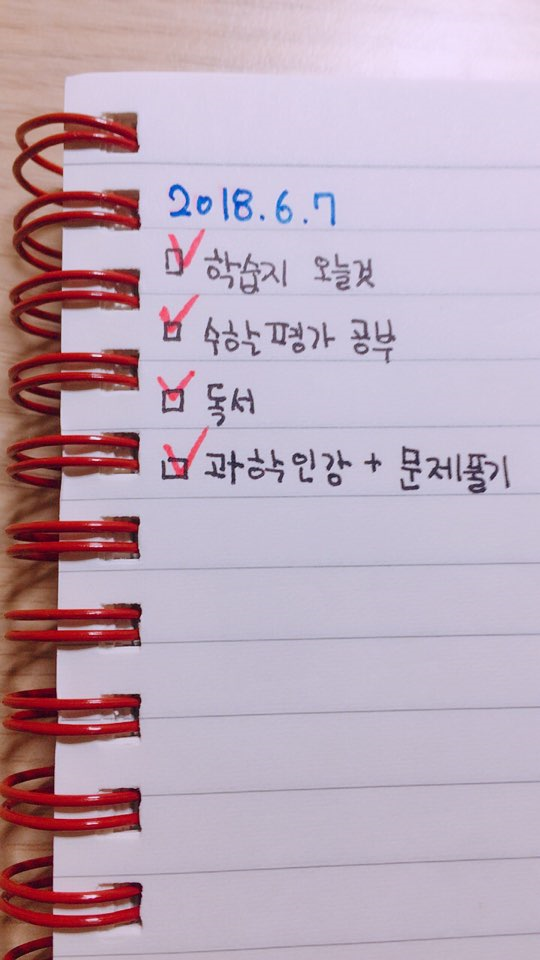 2018.6.7
☑ 학습지 오늘것
☑ 수학눈평가 공부
☑ 독서
☑ 과학인강 + 문제풀기